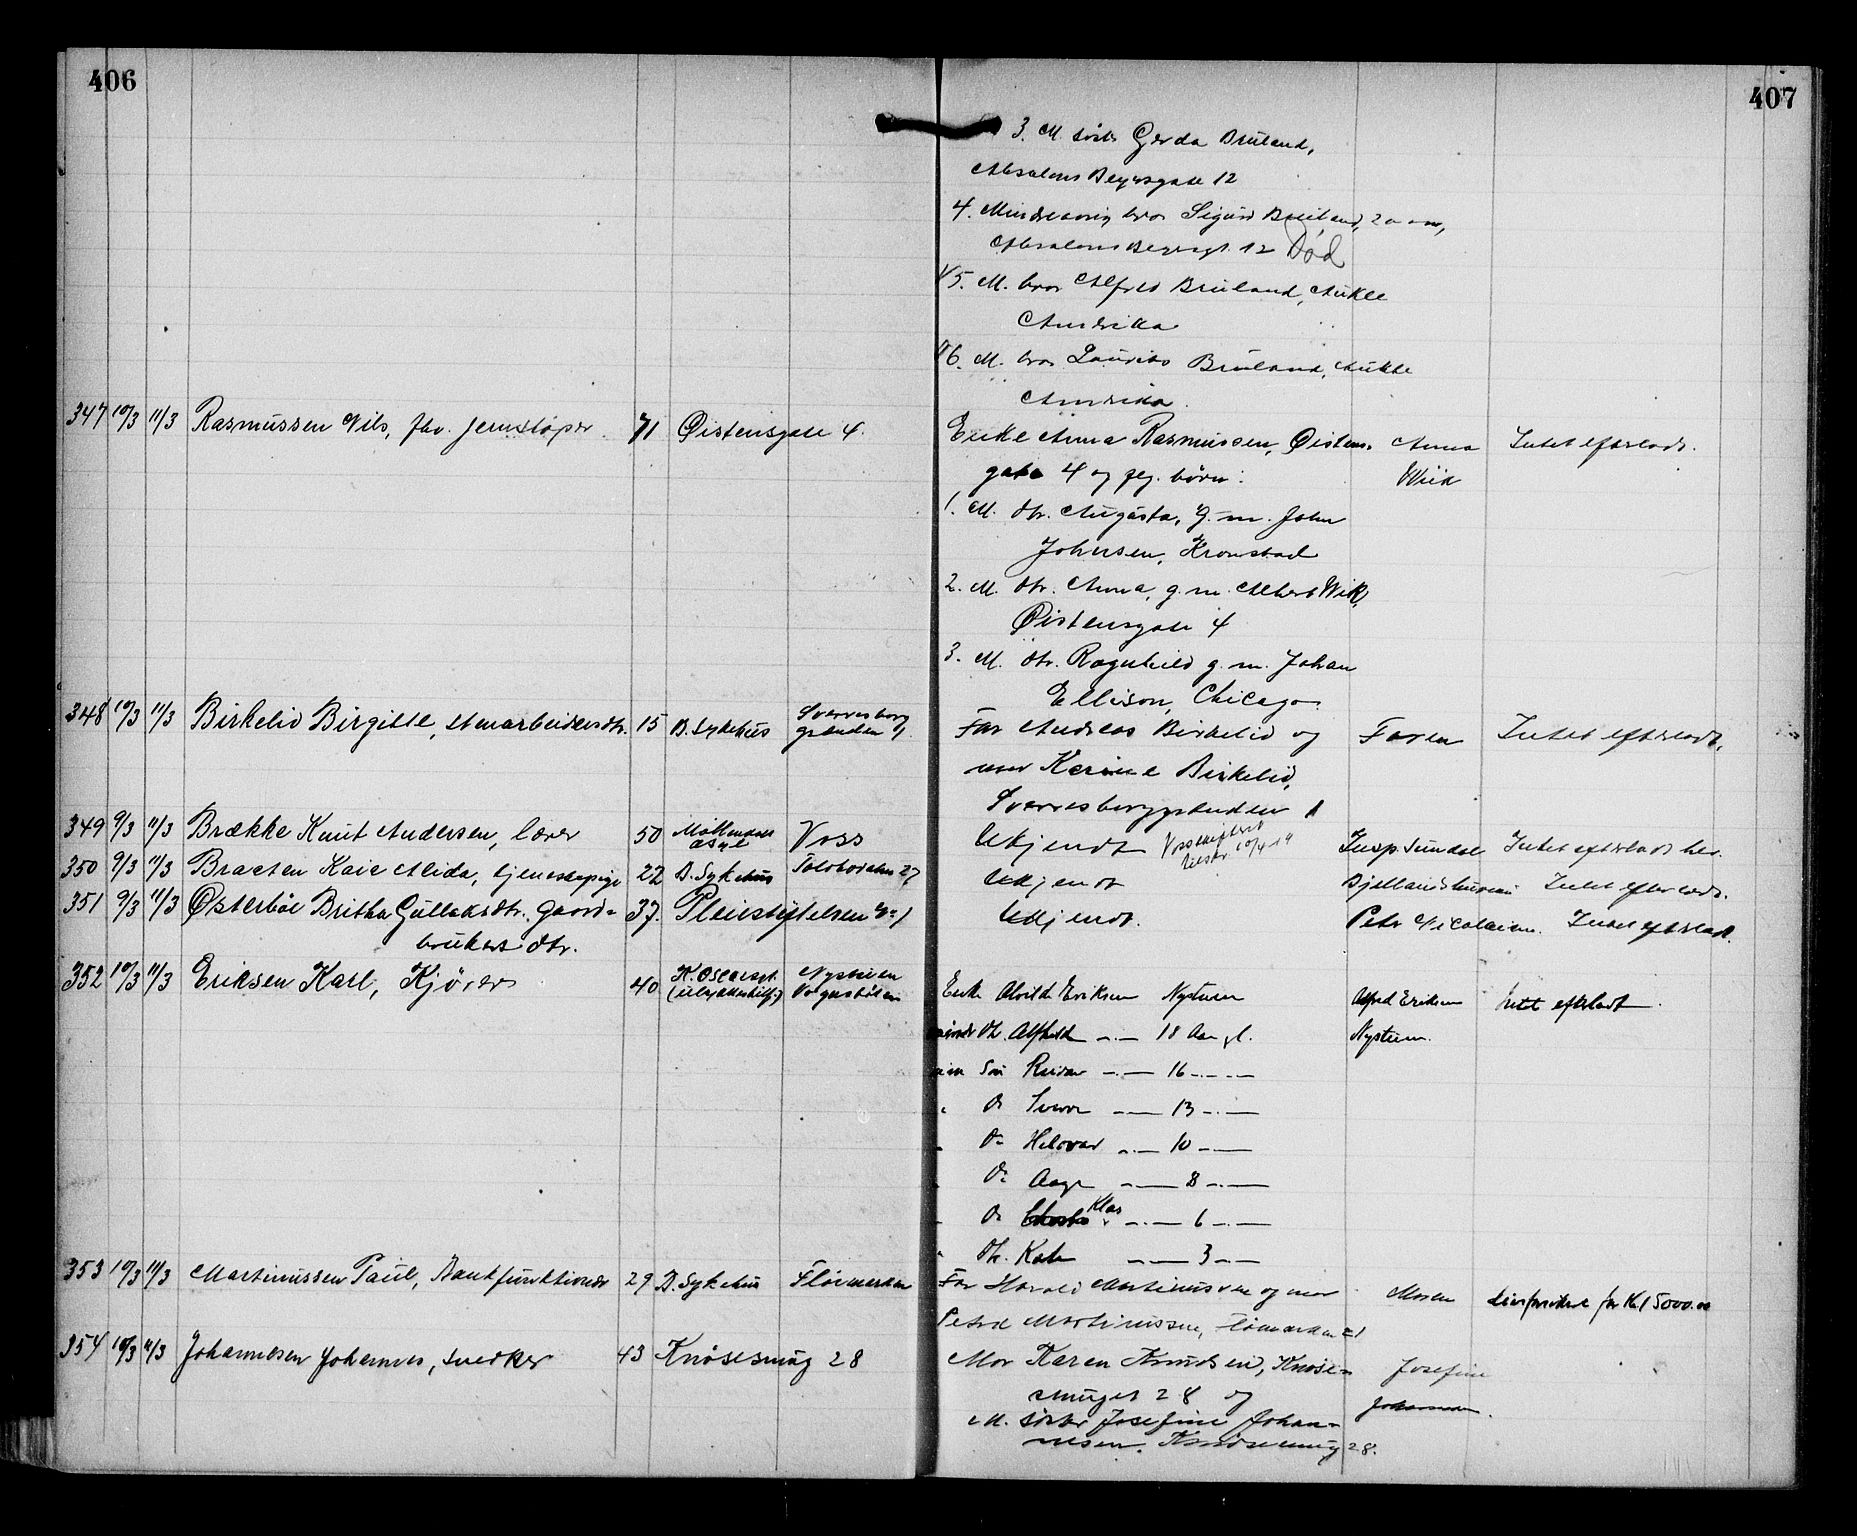 406
407
3. M. søster Gerda Bruland,
Absalons Beyersgate 12
4. Mindreaarig bror Sigurd Bruland, 20 aar,
Absalons Beyersgt. 12 Død
5. M. bror Alfred Bruland,
Amerika
6. M. bror Lauritz Bruland,
Amerika.
347 10/3 11/3 Rasmussen Nils, fhv. jernstøper 71 Øistensgate 4. Enke Anna Rasmussen, Øistens- Anna Intet efterladt.
gate 4 og flg. børn: Wiik
1. M. dtr. Augusta, g. m. John
Johnsen, Kronstad
2. M. dtr. Anna, g. m. Albert Wik,
Øistensgate 4
3. M. dtr. Ragnhild g. m. Johan
Ellison, Chicago
348 10/3 11/3 Birkelid Birgitte, stenarbeidersdtr. 15 B. Sykehus Sverresborg
grenden 1 Far Andreas Birkelid og Faren Intet efterladt.
mor Karine Birkelid,
Sverresborggrenden 1
349 9/3 11/3 Brække Knut Andersen, lærer 50 Møllendal
asyl Voss Ukjendt Insp. Sundal Intet efterladt her.
350 9/3 11/3 Braeten Kaie Alida, tjenestepige 22 B. Sykehus 27 Ukjendt Intet efterladt.
351 9/3 11/3 Østerbøe Britha Gullaksdtr. gaard- 37. Pleiestiftelsen No 1 Ukjendt. Petr Nicolaisen. Intet efterladt.
brukers dtr.
352 10/3 11/3 Eriksen Karl, Kjører 40 K. Oscarsgt. Nystuen
Enke Alvilde Eriksen Nystuen Alfred Eriksen Intet efterladt.
mindr dtr. Alfhild —"— 18 Aar gl. Nystuen.
min Søn Reidar —"— 16 —"—
" Do Sverre —"— 13 —"—
" Do Halvar —"— 10 —"—
" Do Aage —"— 8 —"—
" Do Klas —"— 6 —"—
" Dtr. Kate —"— 3 —"—
353 10/3 11/3 Martinussen Paul, Bankfunktionær 29 B. Sykehus Fløimarken Far Harald Martinussen og mor Moren Livsforsikret for Kr 15000.00
Petra Martinussen,
354 10/3 11/3 Johannesen Johannes, snekker 43 Knøsesmug 28 Mor Karen Knudsen, Knøse- Josefine
smuget 28 og Johannesen.
M. søster Josefine Johan-
nesen. Knøsesmug 28.